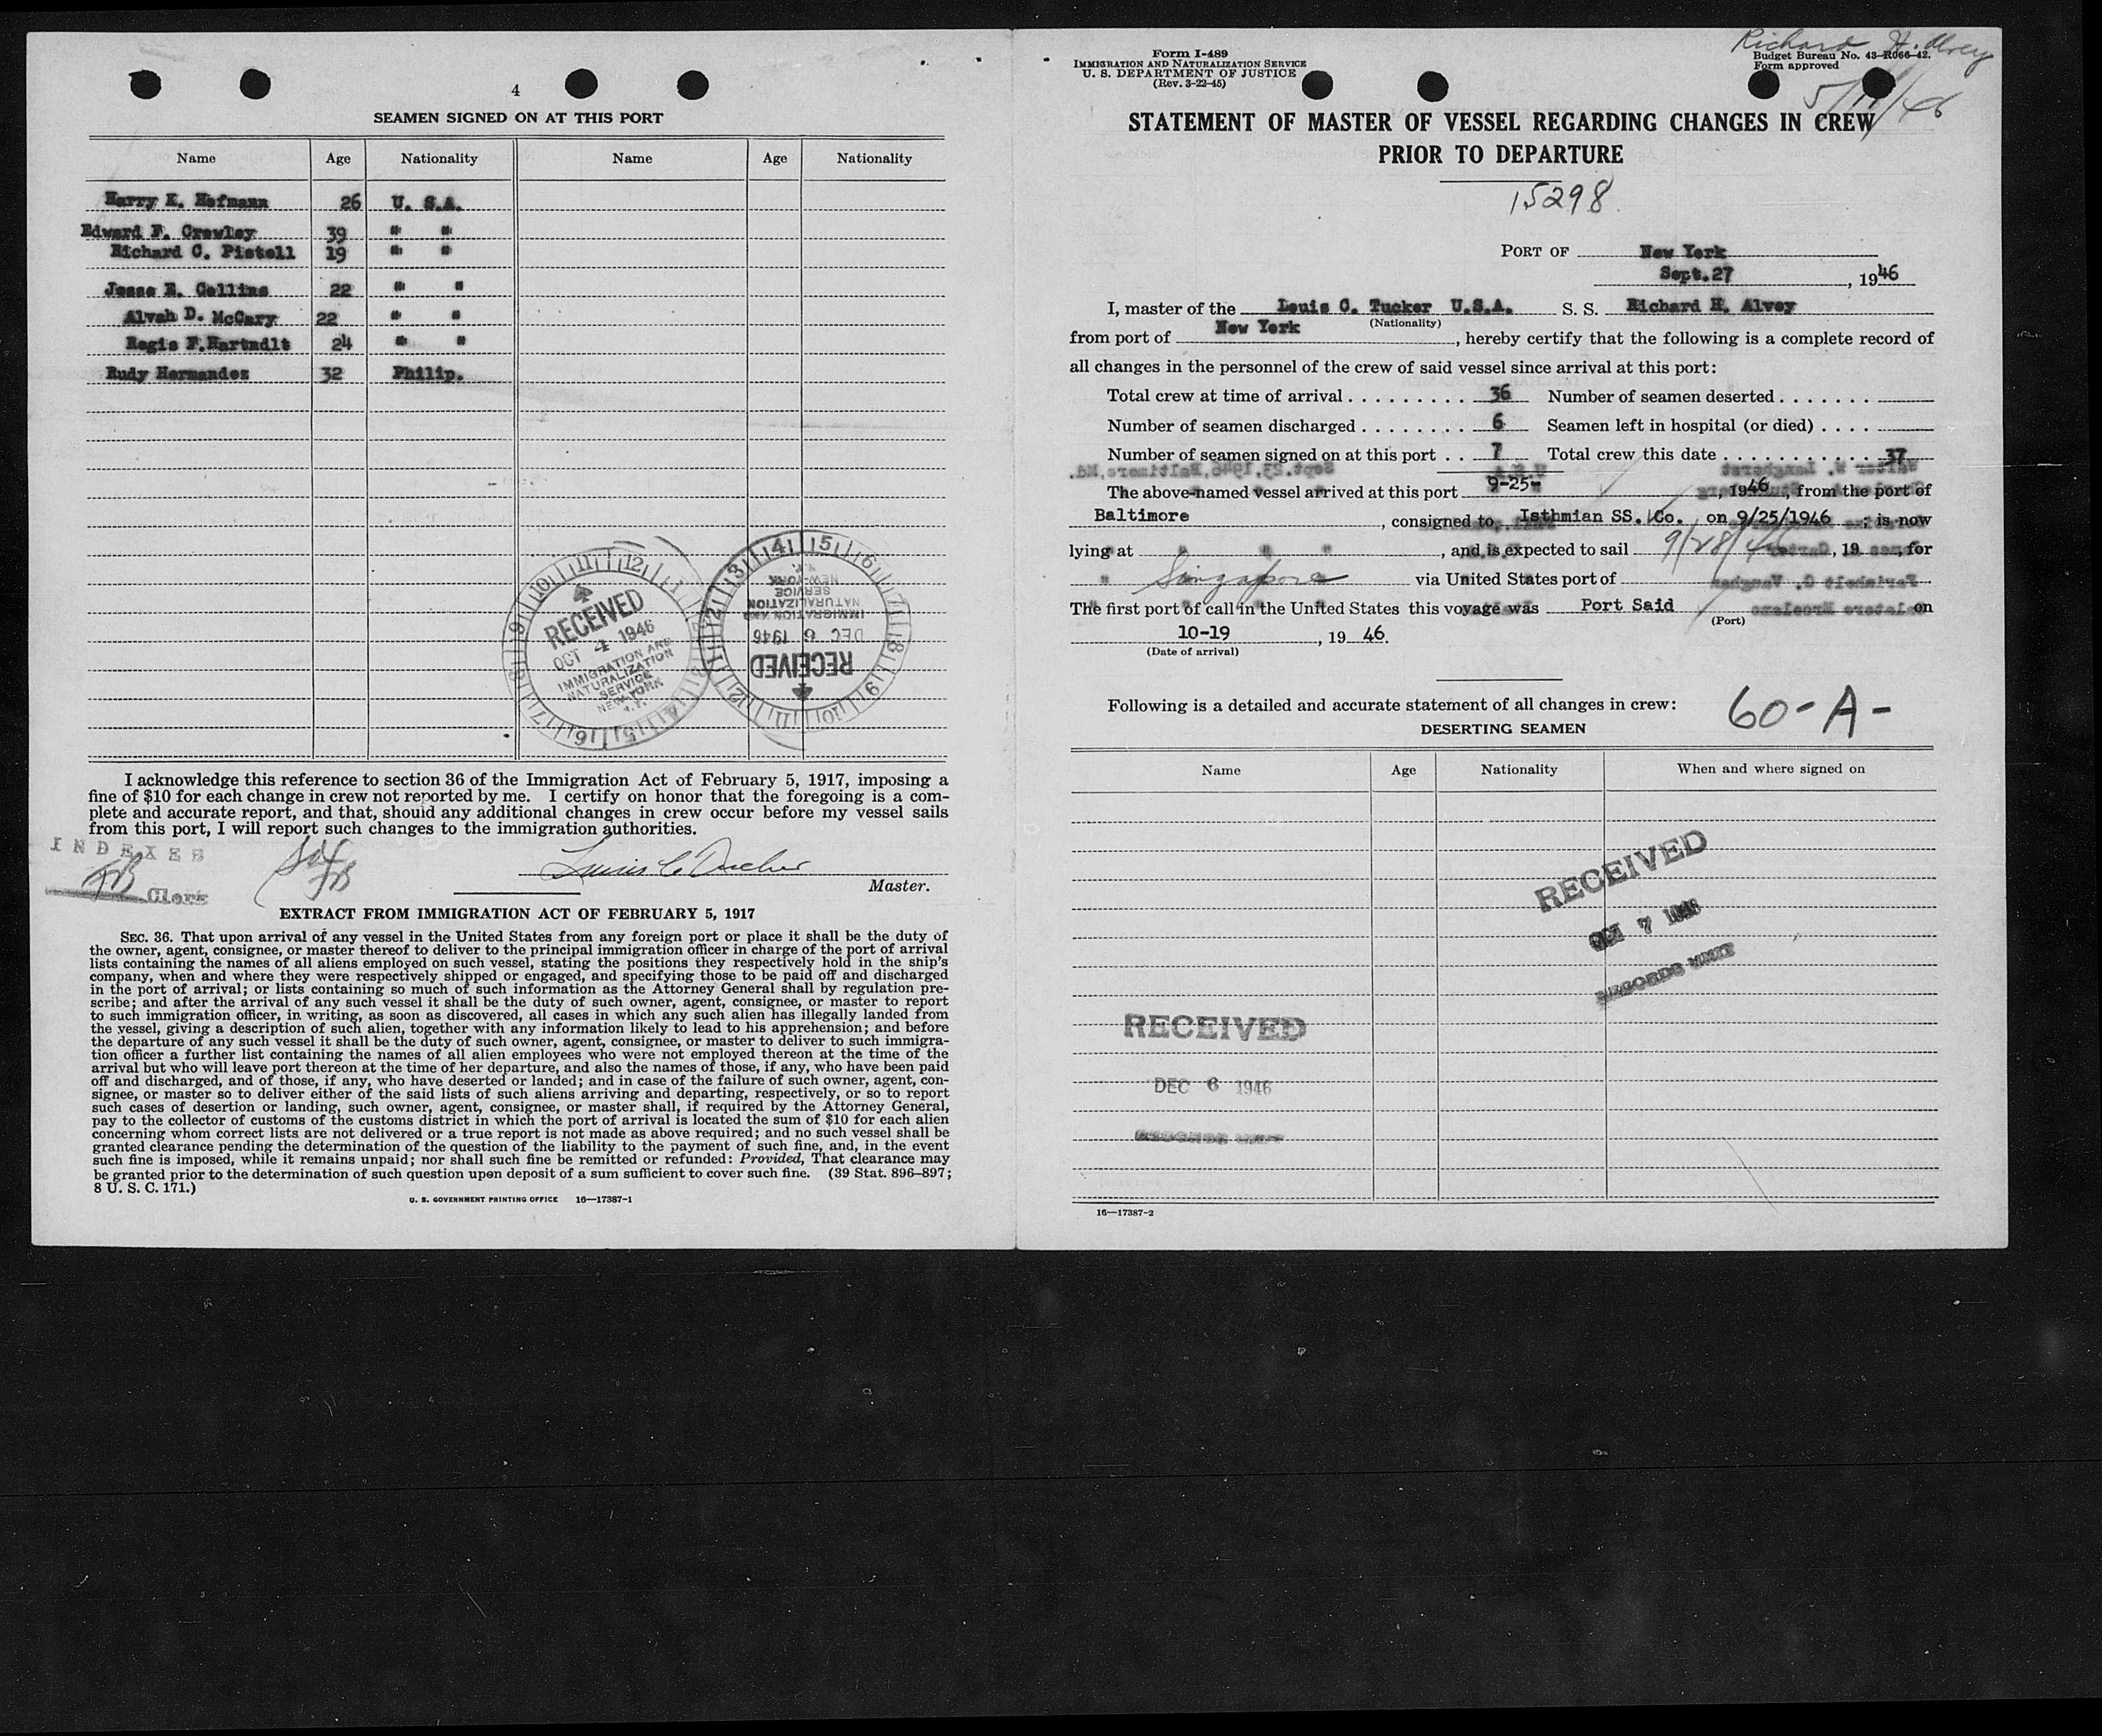 4
SEAMEN SIGNED ON AT THIS PORT
Name Age Nationality Name Age Nationality
Harry K. Hofmann 26 U. S.A.
Edward F. Crowley 39 " "
Richard C. Pistell 19 " "
Jesse E. Collins 22 " "
Alvah D. McCary 22 " "
Regis F. 24 " "
Rudy Hermandez 32 Philip.
RECEIVED
OCT 4 1946
IMMIGRATION AND
NATURALIZATION
SERVICE
NEW-YORK
N.Y.
RECEIVED
DEC 6 1946
IMMIGRATION AND
NATURALIZATION
SERVICE
NEW-YORK
N.Y.
I acknowledge this reference to section 36 of the Immigration Act of February 5, 1917, imposing a
fine of $10 for each change in crew not reported by me. I certify on honor that the foregoing is a com-
plete and accurate report, and that, should any additional changes in crew occur before my vessel sails
from this port, I will report such changes to the immigration authorities.
INDEXES
Clerk
Louis C Tucker
Master.
EXTRACT FROM IMMIGRATION ACT OF FEBRUARY 5, 1917
SEC. 36. That upon arrival of any vessel in the United States from any foreign port or place it shall be the duty of
the owner, agent, consignee, or master thereof to deliver to the principal immigration officer in charge of the port of arrival
lists containing the names of all aliens employed on such vessel, stating the positions they respectively hold in the ship's
company, when and where they were respectively shipped or engaged, and specifying those to be paid off and discharged
in the port of arrival; or lists containing so much of such information as the Attorney General shall by regulation pre-
scribe; and after the arrival of any such vessel it shall be the duty of such owner, agent, consignee, or master to report
to such immigration officer, in writing, as soon as discovered, all cases in which any such alien has illegally landed from
the vessel, giving a description of such alien, together with any information likely to lead to his apprehension; and before
the departure of any such vessel it shall be the duty of such owner, agent, consignee, or master to deliver to such immigra-
tion officer a further list containing the names of all alien employees who were not employed thereon at the time of the
arrival but who will leave port thereon at the time of her departure, and also the names of those, if any, who have been paid
off and discharged, and of those, if any, who have deserted or landed; and in case of the failure of such owner, agent, con-
signee, or master so to deliver either of the said lists of such aliens arriving and departing, respectively, or so to report
such cases of desertion or landing, such owner, agent, consignee, or master shall, if required by the Attorney General,
pay to the collector of customs of the customs district in which the port of arrival is located the sum of $10 for each alien
concerning whom correct lists are not delivered or a true report is not made as above required; and no such vessel shall be
granted clearance pending the determination of the question of the liability to the payment of such fine, and, in the event
such fine is imposed, while it remains unpaid; nor shall such fine be remitted or refunded: Provided, That clearance may
be granted prior to the determination of such question upon deposit of a sum sufficient to cover such fine. (39 Stat. 896–897;
8 U. S. C. 171.)
U. S. GOVERNMENT PRINTING OFFICE 16—17387-1
Form I-489
IMMIGRATION AND NATURALIZATION SERVICE
U. S. DEPARTMENT OF JUSTICE
(Rev. 3-22-45)
Richard H. Alvey
Budget Bureau No. 43-R066-42.
Form approved
STATEMENT OF MASTER OF VESSEL REGARDING CHANGES IN CREW
PRIOR TO DEPARTURE
15298
PORT OF New York
Sept.27, 1946
I, master of the Louis C. Tucker U.S.A. S. S. Richard H. Alvey
(Nationality)
from port of New York, hereby certify that the following is a complete record of
all changes in the personnel of the crew of said vessel since arrival at this port:
Total crew at time of arrival . . . . . . . . . 36 Number of seamen deserted . . . . . . .
Number of seamen discharged . . . . . . . . 6 Seamen left in hospital (or died) . . . .
Number of seamen signed on at this port . . 7 Total crew this date . . . . . . . . . . . . 37
The above-named vessel arrived at this port 9-25-, 1946, from the port of
Baltimore, consigned to Isthmian SS. Co. on 9/25/1946; is now
lying at , and is expected to sail 9/28/46, 19 , for
Singapore via United States port of
The first port of call in the United States this voyage was Port Said on
(Port)
10-19, 19 46.
(Date of arrival)
Following is a detailed and accurate statement of all changes in crew:
60-A-
DESERTING SEAMEN
Name Age Nationality When and where signed on
RECEIVED
7 1946
RECORDS UNIT
RECEIVED
DEC 6 1946
RECORDS UNIT
16—17387-2